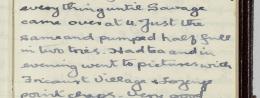 everything until Savage
came over at 4. Just the
same and pumped half full
in two tries. Had tea and in
evening went to pictures with
Village &
point